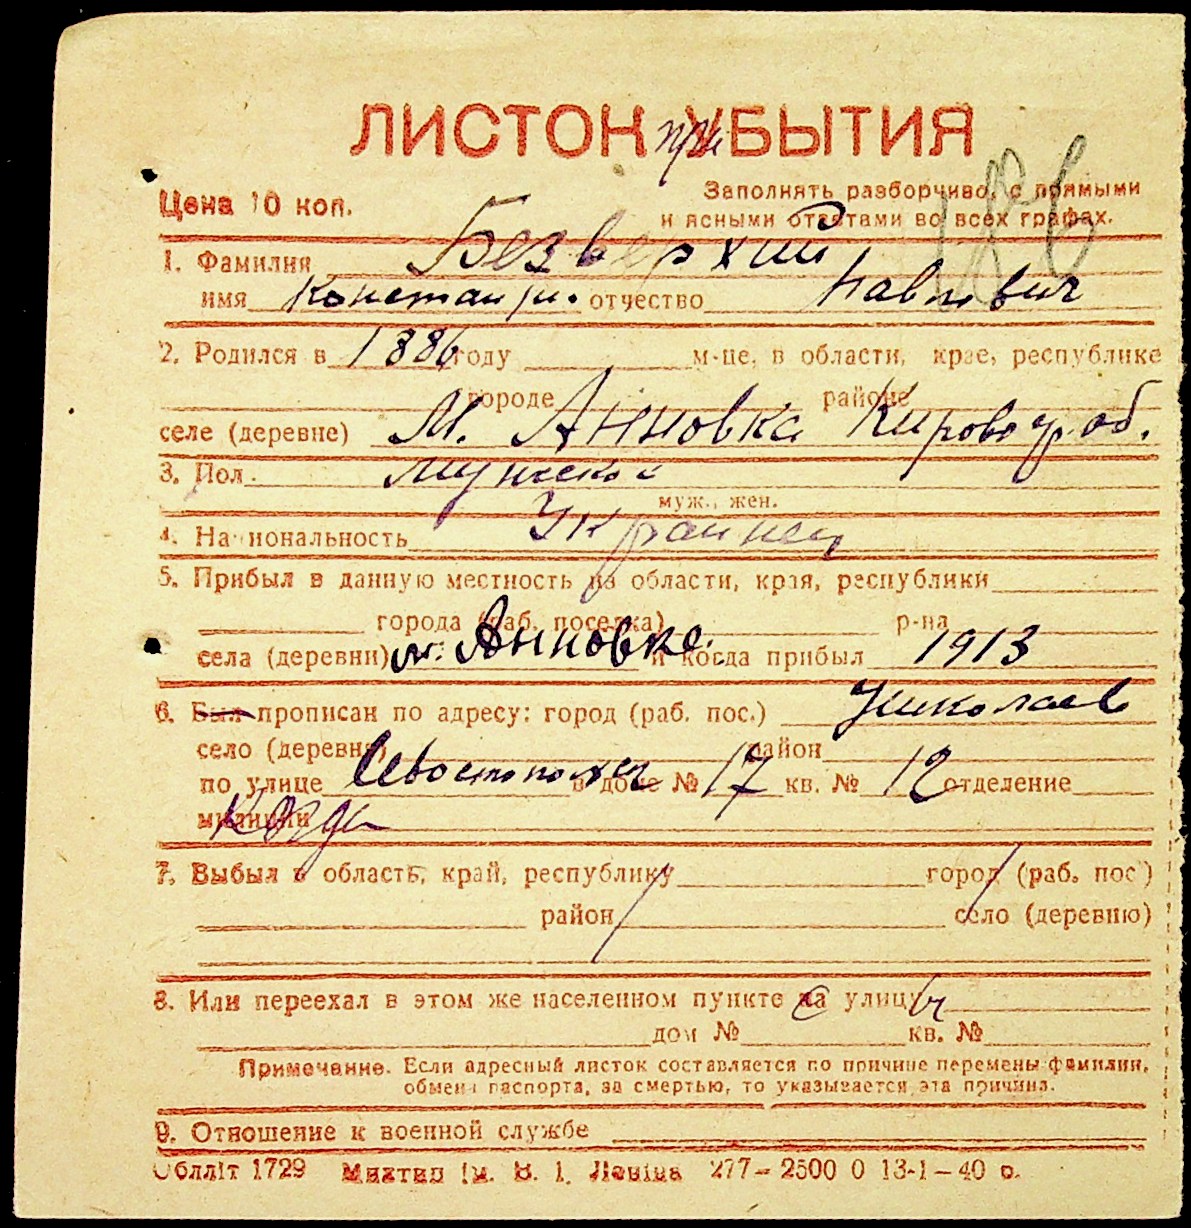 ЛИСТОК при УБЫТИЯ
Цена 10 коп.
Заполнять разборчиво, с прямыми
и ясными ответами во всех графах.
1. Фамилия Безверхий
имя Констант. отчество Павлович
2. Родился в 1886 году м-це, в области, крае, республике
городе районе
селе (деревне) м. Анновка Кировогр. об.
3. Пол. мужской
муж., жен.
4. Национальность Украинец
5. Прибыл в данную местность из области, края, республики
города (раб. поселка) р-на
села (деревни) м. Анновке. и когда прибыл 1913
6. Был прописан по адресу: город (раб. пос.) Николаев
село (деревня) район
по улице в доме № 17 кв. № 12 отделение
милиции
7. Выбыл в область, край, республику город (раб. пос.)
район село (деревню)
8. Или переехал в этом же населенном пункте на улицу
дом № кв. №
Примечание. Если адресный листок составляется по причине перемены фамилии,
обмена паспорта, за смертью, то указывается эта причина.
9. Отношение к военной службе
Облліт 1729 Миктип ім. В. І. Леніна 277–2500 0 13-1–40 р.